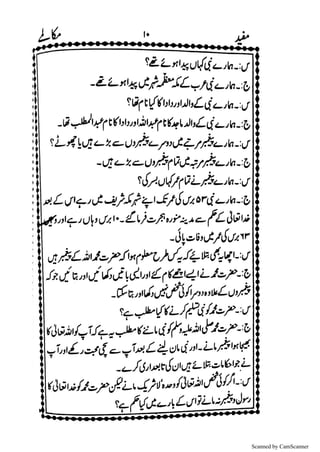 مفید ۱۰ مکالمے
س:۔ ہمارے نبی کہاں پیدا ہوئے تھے؟
ج:۔ ہمارے نبی عرب کے مکہ معظمہ شہر میں پیدا ہوئے تھے۔
س:۔ ہمارے نبی کے والد اور دادا کا کیا نام تھا؟
ج:۔ ہمارے نبی کے والد ماجد کا نام عبداللہ اور دادا کا نام عبدالمطلب تھا۔
س:۔ ہمارے پیغمبر مرتبے میں دوسرے پیغمبروں سے بڑے ہیں یا چھوٹے؟
ج:۔ ہمارے پیغمبر مرتبہ میں تمام پیغمبروں سے بڑے ہیں۔
س:۔ ہمارے پیغمبر نے تمام عمر کہاں بسر کی؟
ج:۔ ہمارے نبی ۵۳ برس کی عمر تک اپنے شہر مکہ شریف میں رہے اس کے بعد
خدا تعالیٰ کے حکم سے مدینہ منورہ ہجرت فرما گئے۔ ۱۰ برس وہاں رہے اور
۶۳ برس کی عمر میں وفات پائی۔
س:۔ اچھا یہ بھی بتلایئے کہ یہ کس طرح معلوم ہوا کہ حضرت محمدؐ اللہ کے پیغمبر ہیں
ج:۔ حضرت محمدؐ نے ایسے اچھے کام کئے اور ایسی باتیں دکھائیں اور بتائیں جو کہ
پیغمبروں کے علاوہ دوسرا کوئی شخص نہیں دکھا اور بتا سکتا۔
س:۔ حضرت محمدؐ کو نبی تسلیم کرنے کا کیا مطلب ہے؟
ج:۔ حضرت محمد صلی اللہ علیہ وسلم کو نبی ماننے کا مطلب یہ ہے کہ آپ کو اللہ تعالیٰ کا
بھیجا ہوا پیغمبر مانے۔ اور نبی مان لینے کے بعد آپ سے سچی محبت رکھے اور آپ
نے جو احکامات بتلائے ہیں ان کی تابعداری کرے۔
س:۔ اگر کوئی شخص اللہ تعالیٰ کو وحدہٗ لاشریک مانے لیکن حضرت محمدؐ کو خدا تعالیٰ کا
رسول و پیغمبر نہ مانے تو اس کے بارے میں کیا حکم ہے؟
Scanned by CamScanner